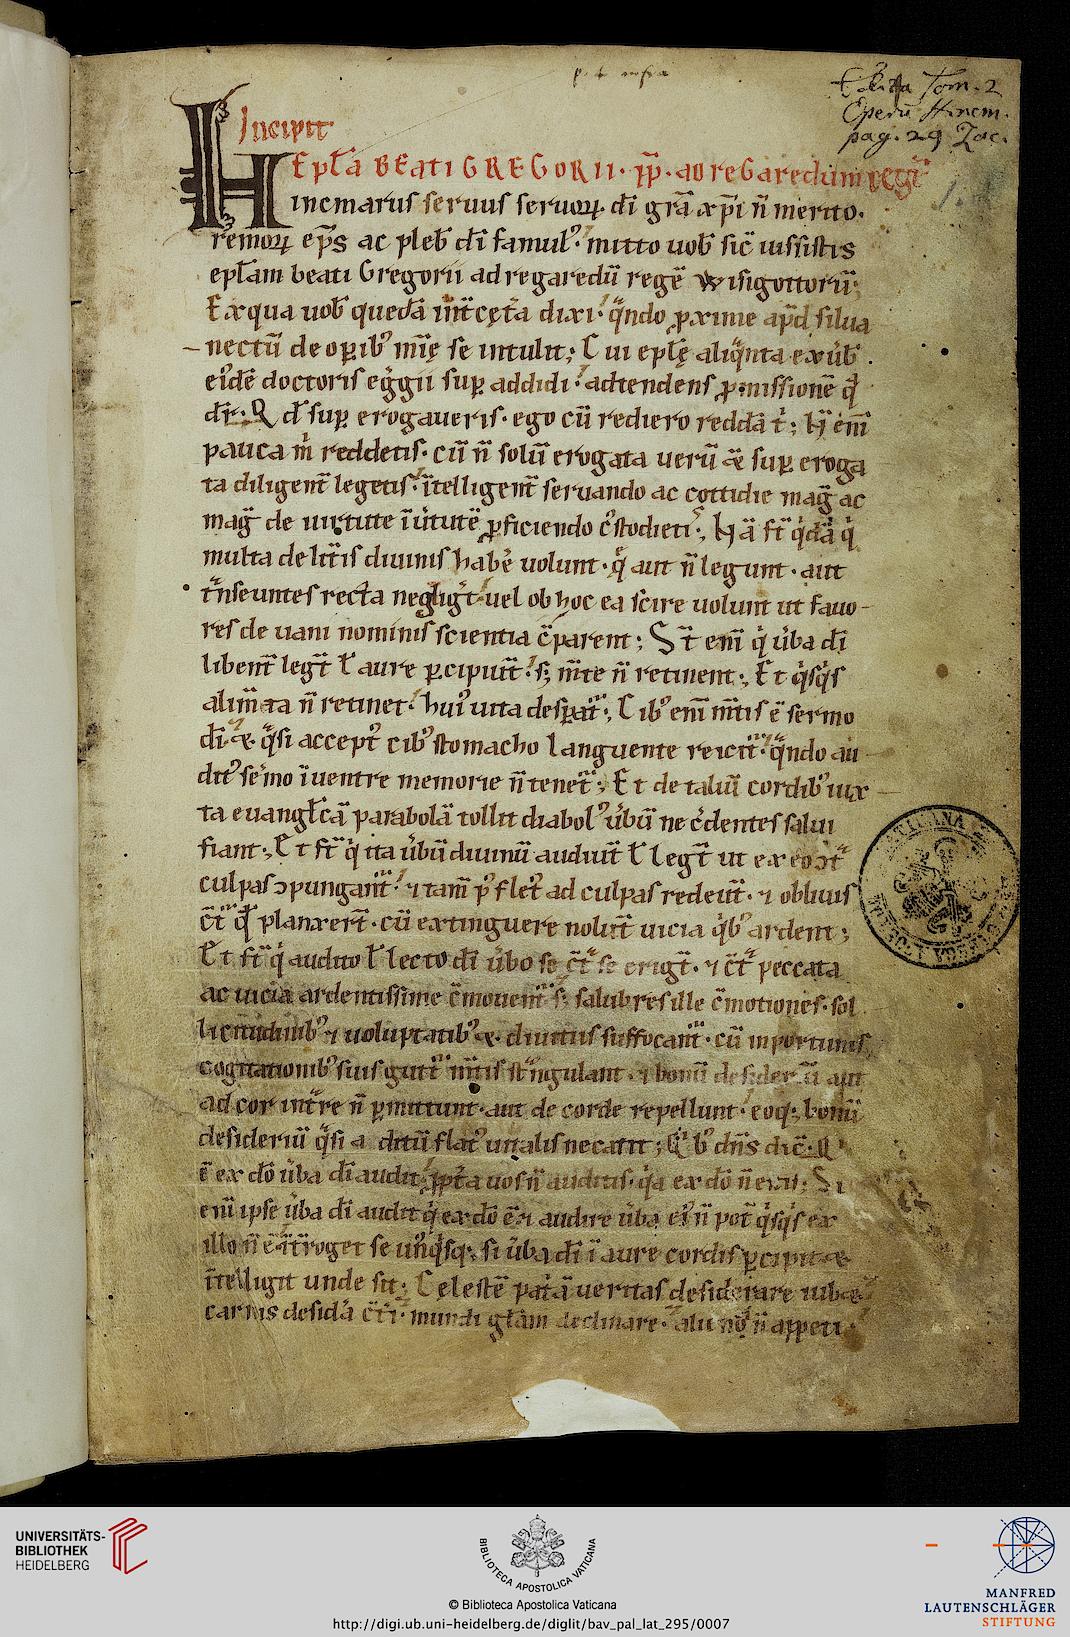 Edita Tom. 2
Operū Hincm.
pag. 29 Jac.
Incipit
Epl̄a BEATI GREGORII · pp̄ · ad regaredum regē
Hincmarus servus servoꝝ dī grā xp̄i n̄ merito ·
remoꝝ ep̄s ac pleb̄ dī famulꝰ · mitto uob̄ sic̄ iussistis
epl̄am beati Gregorii ad regaredū regē wisigottorū ;
Ex qua uob̄ quedā int̄ cęt̄a dixi · qͣndo ꝓxime ap̄d silua
nectū de oꝑibꝫ mīę se intulit ; Cui epl̄ę aliqͣnta ex ūb̄
eīdē doctoris eḡgii suꝑ addidi · adtendens ꝓmissionē q̄
dīr · Qd̄ suꝑ erogaveris · ego cū rediero reddā t̄ ; H̄ enī
pauca m̄ reddetis · cū n̄ solū erogata uerū & suꝑ eroga
ta diligent̄ legetis · ītelligent̄ servando ac cottidie maḡ ac
maḡ de uirtute ī ūtutē ꝓficiendo c̄stodieti ; Hā st̄ qͥdā qͥ
multa de litīs divinis habē uolunt · q̄ aut n̄ legunt · aut
tͣnseuntes recta negligt̄ · uel ob hoc ea scire uolunt ut favo
res de uani nominis scientia c̄parent ; St̄ enī qͥ ūba dī
libent̄ legt̄ l̄ aure ꝑcipiūt · sꝫ m̄te n̄ retinent ; Et qͥsqͥs
alim̄ta n̄ retinet · huiꝰ uita despat̄ ; Cibꝰ enī m̄tis ē sermo
dī · & qͣsi acceptꝰ cibꝰ stomacho languente reicit̄ · qͣndo au
ditꝰ sermo ī ventre memorie n̄ tenet̄ ; Et de taliū cordibꝰ iux
ta evangl̄cā parabolā tollit diabolꝰ ūbū ne c̄dentes salui
fiant ; Et st̄ qͥ ita ūbū divinū audiūt l̄ legt̄ ut ex eo
culpas ↄpungant̄ · ⁊ tam̄ pꝰ fletꝰ ad culpas redeūt · ⁊ obliuis
c̄t q̄ planxert̄ · cū extinguere nolūt uicia qͥbꝰ ardent ;
Et st̄ qͥ audito l̄ lecto dī ūbo se c̄t se erigt̄ · ⁊ c̄t peccata
ac uicia ardentissime c̄movent̄ sꝫ salubres ille c̄motiones · sol
licitudinibꝰ ⁊ voluptatibꝰ & divitiis suffocant̄ · cū inportunis
cogitationibꝰ suis gutt̄ m̄tis stͣngulant ⁊ bonū desideriū aut
ad cor intͣre n̄ ꝑmittunt · aut de corde repellunt · eoqꝫ bonū
desideriū qͣsi aditū flatꝰ uitalis necant ; Qͥbꝰ dn̄s dic̄ · Q
ē ex dō ūba dī audit · ꝓpt̄a uos n̄ auditis · qͥa ex dō n̄ estis ; Si
enī ipse ūba dī audit qͥ ex dō ē · ⁊ audire ūba eiꝰ n̄ pot̄ qͥsqͥs ex
illo n̄ ē · īt̄roget se unꝰqͥsqꝫ · si ūba dī ī aure cordis ꝑcipit &
ītelligit unde sit ; Celestē patͥā veritas desiderare iub&
carnis desidͥa c̄t̄i · mundi gl̄am declinare · alienā n̄ appeti
VATICANA
UNIVERSITÄTS-
BIBLIOTHEK
HEIDELBERG
BIBLIOTECA APOSTOLICA VATICANA
© Biblioteca Apostolica Vaticana
http://digi.ub.uni-heidelberg.de/diglit/bav_pal_lat_295/0007
MANFRED
LAUTENSCHLÄGER
STIFTUNG